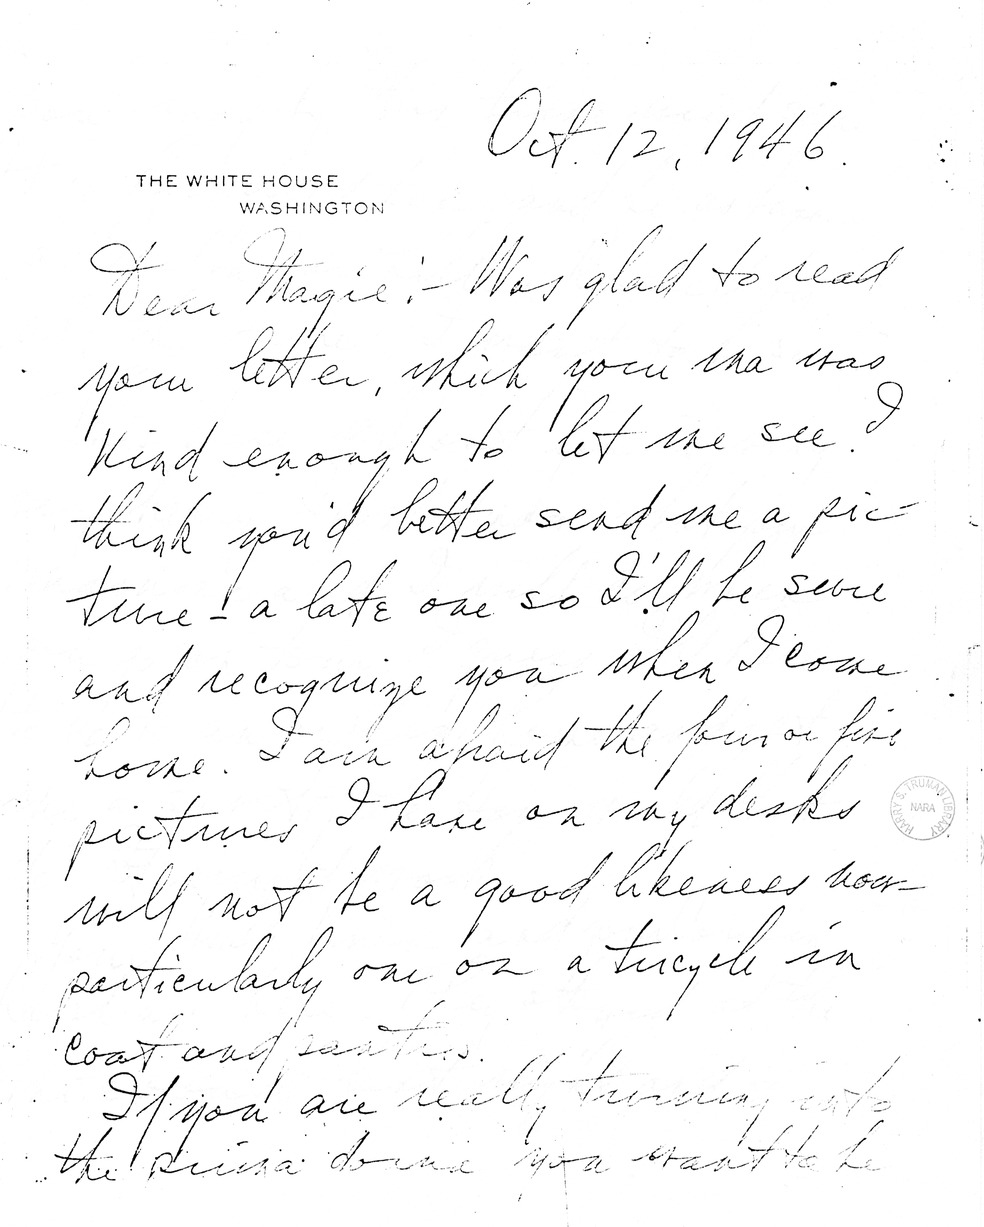 Oct. 12, 1946.
THE WHITE HOUSE
WASHINGTON
Dear Magie:- Was glad to read
your letter, which your ma was
kind enough to let me see. I
think you'd better send me a pic-
ture - a late one so I'll be sure
and recognize you when I come
home. I am afraid the four or five
pictures I have on my desks
will not be a good likeness now-
particularly one on a tricycle in
coat and panties.
If you are really turning into
the prima donna you want to be
HARRY S. TRUMAN LIBRARY
NARA